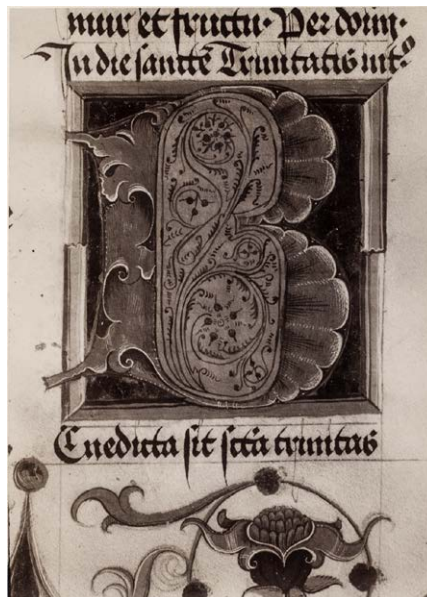 mur et fructu· Per dom̄·
In die sancte Trinitatis int.º
B
Enedicta sit scta trinitas